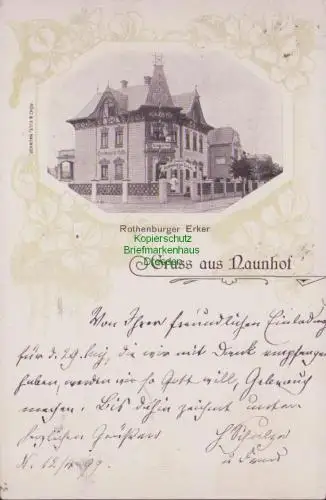 Rothenburger Erker
Kopierschutz
Briefmarkenhaus
Dresden
Gruss aus Naunhof
Von Ihrer freundlichen Einladung
für d. 29. Aug, die wir mit Dank empfangen
haben, werden wir so Gott will, Gebrauch
machen! Bis dahin zeichnet unter
herzlichen Grüßen
N. 12/ 99.
u. Frau